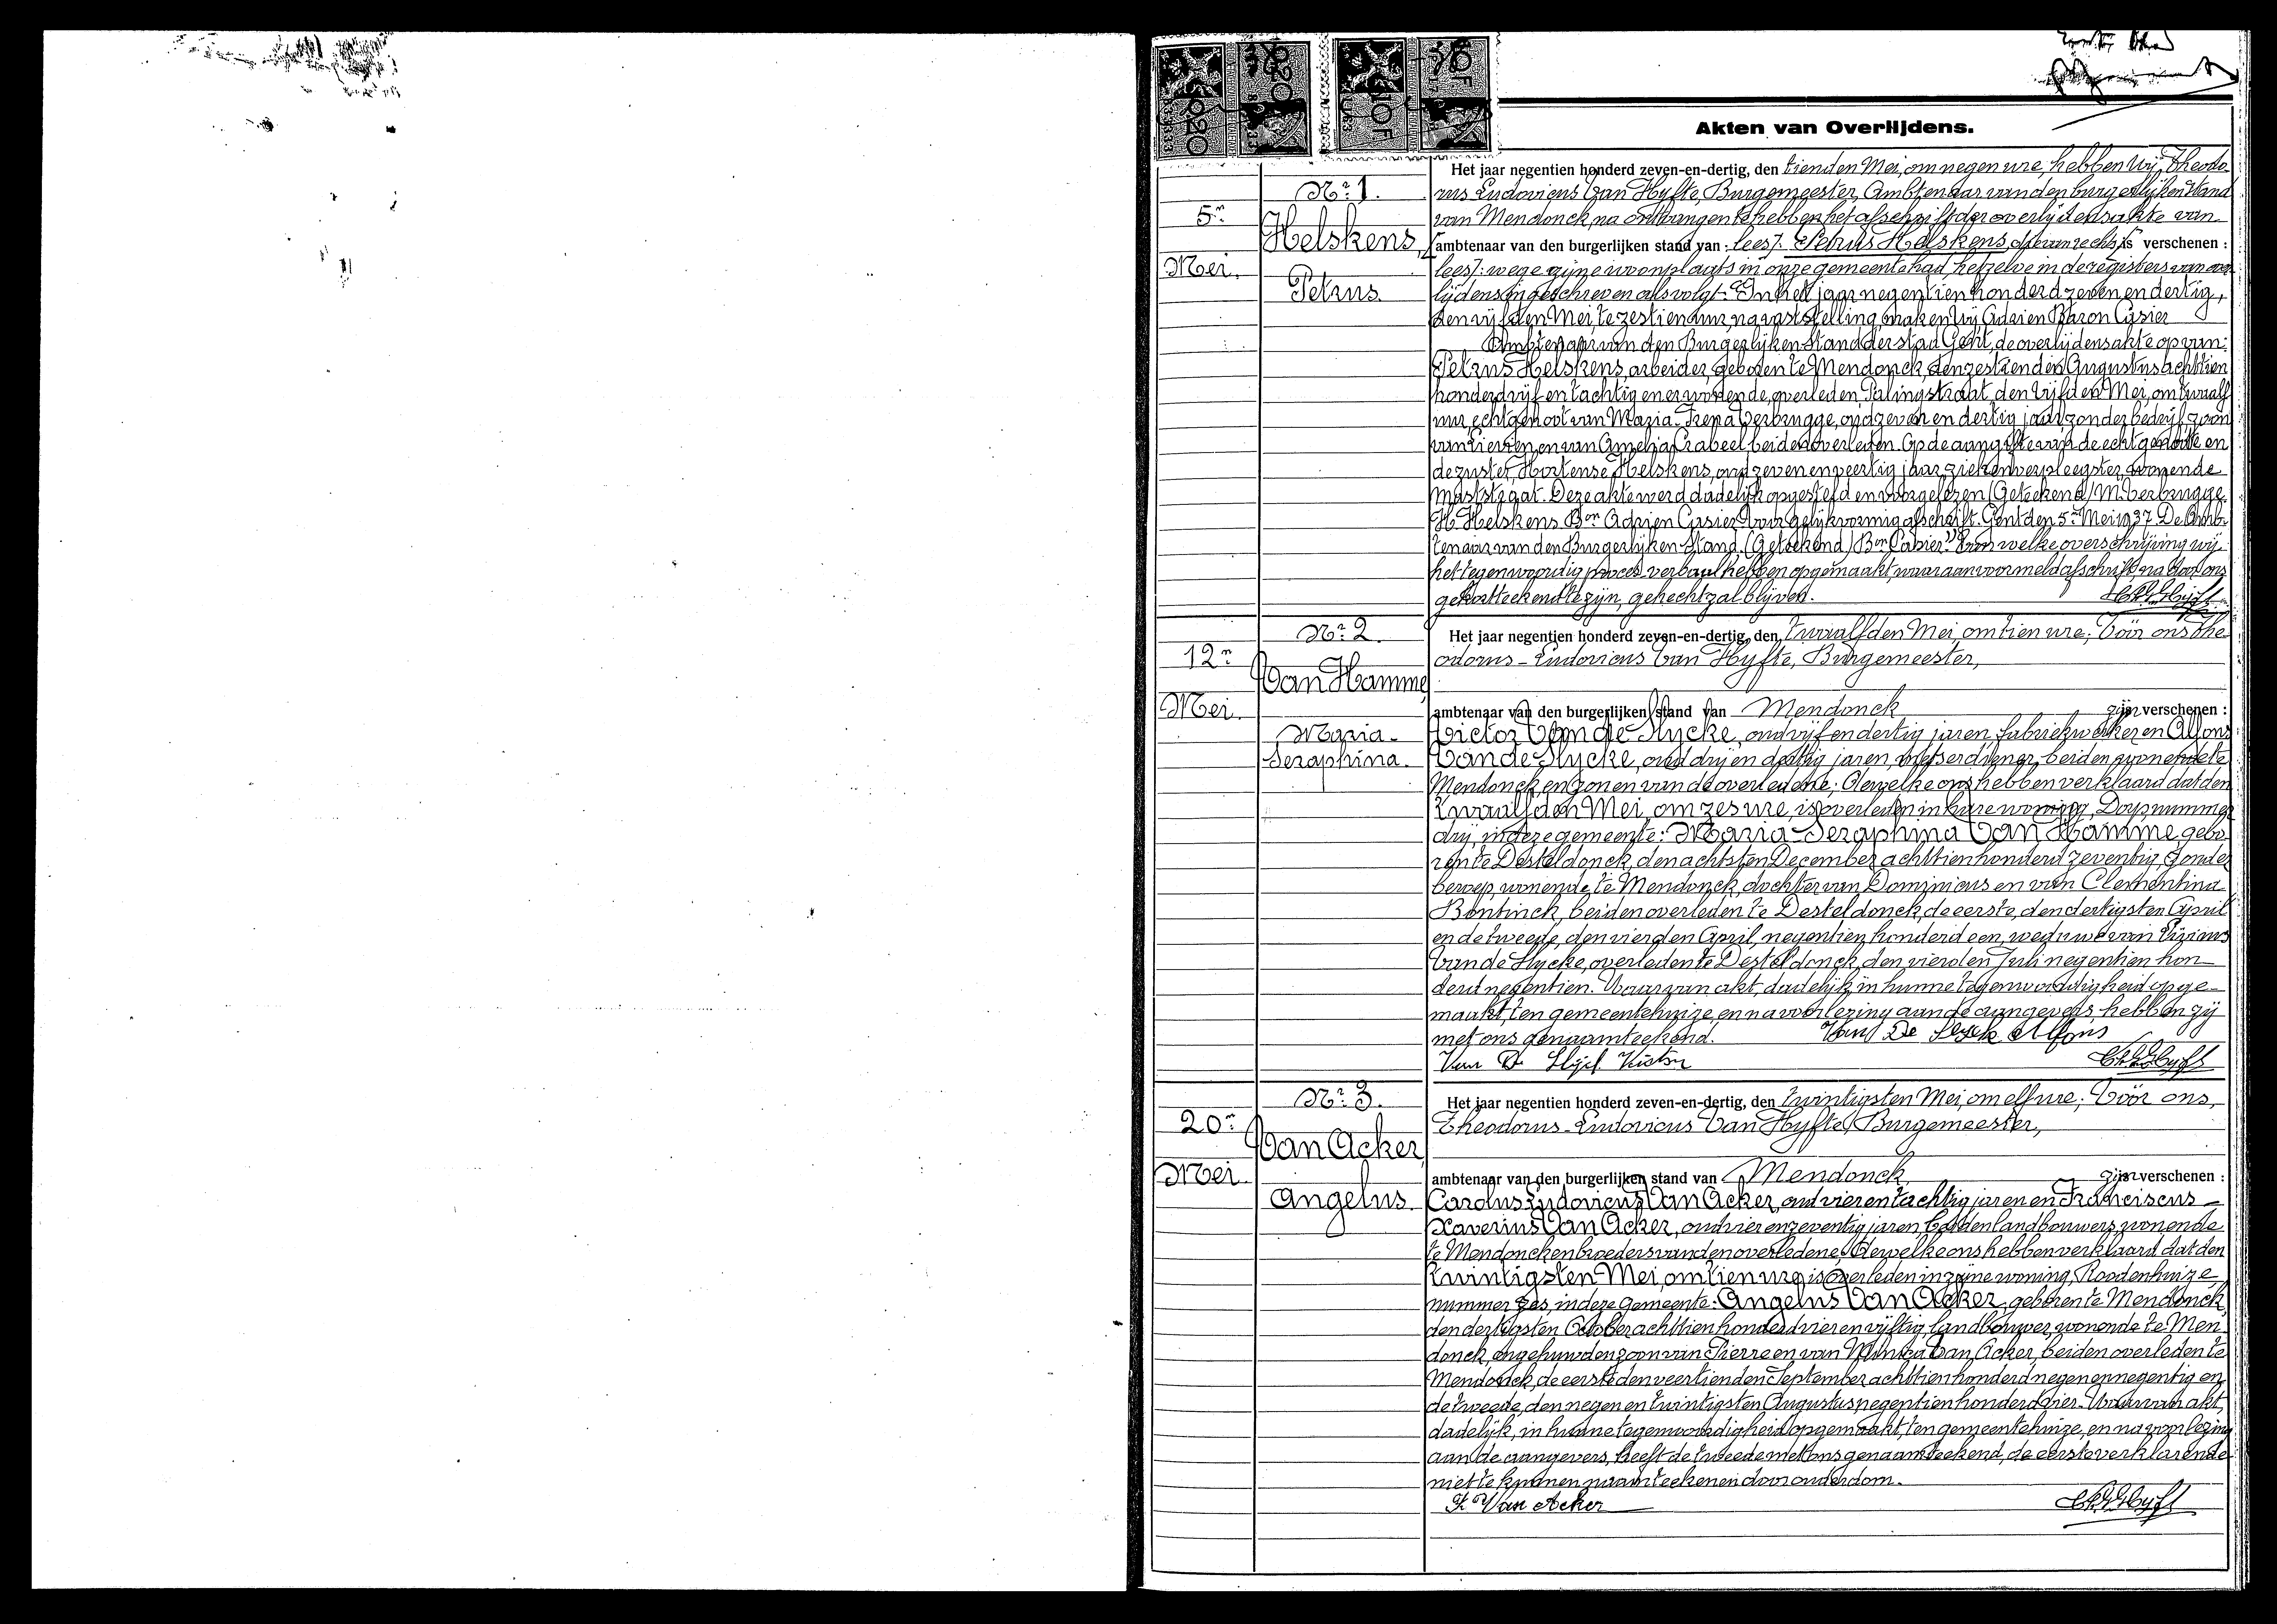 Akten van Overlijdens.
Het jaar negentien honderd zeven-en-dertig, den tienden Mei, om negen ure, hebben Wij, Theodo-
Nr. 1.
rus Ludovicus Van Hyfte, Burgemeester, Ambtenaar van den burgerlijken Stand
5n
van Mendonck, na ontvangen te hebben het afschrift der overlijdensakte van
Helskens,
ambtenaar van den burgerlijken stand van: lees/: Petrus Helskens, die van rechts is verschenen :
Mei.
lees/: wege zijne woonplaats in onze gemeente had, hetzelve in de registers van over-
Petrus.
lijdens ingeschreven als volgt - "In het jaar negentien honderd zeven en dertig,
den vijfden Mei, te zestien uur, na vaststelling, maken Wij Adrien Baron Casier
Ambtenaar van den Burgerlijken Stand der stad Gent, de overlijdensakte op van:
Petrus Helskens, arbeider, geboren te Mendonck, den zestienden Augustus achttien
honderd vijf en tachtig en er wonende, overleden Palingstraat, den vijfden Mei, om twaalf
uur, echtgenoot van Maria Irena Verbrugge, oud zeven en dertig jaar, zonder bedrijf, zoon
van Pierre, en van Amelia Crabeel, beiden overleden. Op de aangifte van de echtgenoote en
de zuster, Hortense Helskens, oud zeven en veertig jaar, ziekenverpleegster, wonende
Maststraat. Deze akte werd dadelijk opgesteld en voorgelezen (Geteekend) M. Verbrugge.
H. Helskens. Bon Adrien Casier. Voor gelijkvormig afschrift. Gent den 5n Mei 1937. De Amb-
tenaar van den Burgerlijken Stand. (Geteekend) Bon Casier." Van welke overschrijving wij
het tegenwoordig proces-verbaal hebben opgemaakt, waaraan voormeld afschrift, na door ons
gekortteekend te zijn, gehecht zal blijven.
Nr. 2.
Het jaar negentien honderd zeven-en-dertig, den twaalfden Mei, om tien ure; Vóór ons The-
12n
odorus - Ludovicus Van Hyfte, Burgemeester,
Van Hamme,
Mei.
ambtenaar van den burgerlijken stand van Mendonck zijn verschenen :
Maria-
Victor Van de Slycke, oud vijf en dertig jaren, fabriekwerker en Alfons
Seraphina.
Van de Slycke, oud drij en dertig jaren, metserdiener, beiden wonende te
Mendonck en zonen van de overledene; Dewelke ons hebben verklaard dat den
twaalfden Mei, om zes ure, is overleden in hare woning, Dorp nummer
drij, in deze gemeente: Maria-Seraphina Van Hamme, gebo-
ren te Desteldonck, den achtsten December achttien honderd zeventig, zonder
beroep, wonende te Mendonck, dochter van Dominicus en van Clementina
Bontinck, beiden overleden te Desteldonck, de eerste, den dertigsten April
en de tweede, den vierden April, negentien honderd een, weduwe van
Van de Slycke, overleden te Desteldonck, den vierden Juli negentien hon-
derd negentien. Waarvan akt, dadelijk, in hunne tegenwoordigheid opge-
maakt, ten gemeentehuize, en na voorlezing aan de aangevers, hebben zij
met ons genaamteekend. Van De Slyck Alfons
Van D Slyck Victor
Nr. 3.
Het jaar negentien honderd zeven-en-dertig, den twintigsten Mei, om elf ure; Vóór ons,
20n
Theodorus-Ludovicus Van Hyfte, Burgemeester,
Van Acker,
Mei.
ambtenaar van den burgerlijken stand van Mendonck, zijn verschenen :
Angelus.
Carolus Ludovicus Van Acker, oud vier en tachtig jaren en Franciscus -
Xaverius Van Acker, oud vier en zeventig jaren, beiden landbouwers, wonende
te Mendonck en broeders van den overledene; Dewelke ons hebben verklaard dat den
twintigsten Mei, om tien ure, is overleden in zijne woning, Roodenhuize,
nummer zes, in deze gemeente: Angelus Van Acker, geboren te Mendonck,
den dertigsten October achttien honderd vier en vijftig, landbouwer, wonende te Men-
donck, ongehuwd en zoon van Pierre en van Van Acker, beiden overleden te
Mendonck, de eerste den veertienden September achttien honderd negen en negentig en
de tweede, den negen en twintigsten Augustus negentien honderd vier. Waarvan akt,
dadelijk, in hunne tegenwoordigheid opgemaakt, ten gemeentehuize, en na voorlezing
aan de aangevers, heeft de tweede met ons genaamteekend, de eerste verklarende
niet te kunnen naamteekenen door ouderdom.
F. Van Acker